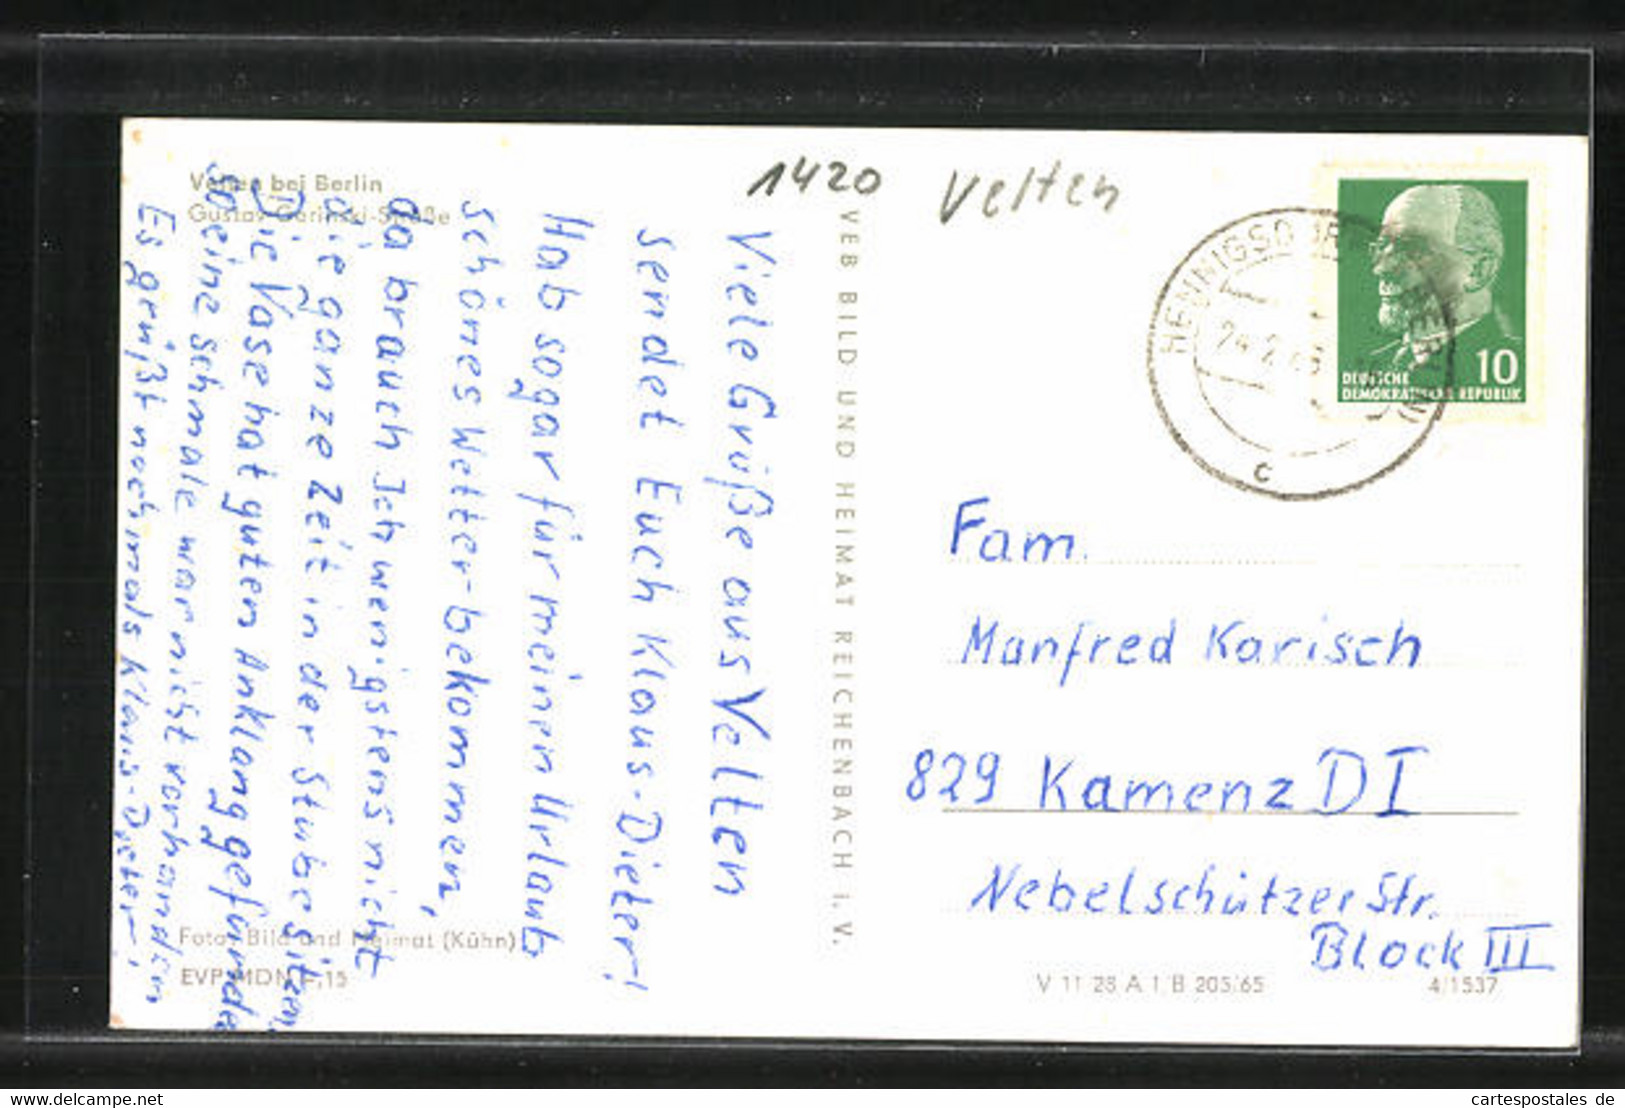 Velten bei Berlin
Gustav-Garinski-Straße
1420 Velten
Viele Grüße aus Velten
sendet Euch Klaus-Dieter!
Hab sogar für meinen Urlaub
schönes Wetter bekommen,
da brauch Ich wenigstens nicht
die ganze Zeit in der Stube sitzen.
Die Vase hat guten Anklang gefunden
so eine schmale war nicht vorhanden
Es grüßt nochmals Klaus-Dieter!
Foto: Bild und Heimat (Kühn)
EVP MDN 0,15
VEB BILD UND HEIMAT REICHENBACH i. V.
HENNIGSDORF BERLIN
24.2.
c
10
DEUTSCHE
DEMOKRATISCHE REPUBLIK
Fam.
Manfred Karisch
829 Kamenz DI
Nebelschützer Str.
Block III
V 11 28 A 1 B 205/65
4/1537
cartespostales de